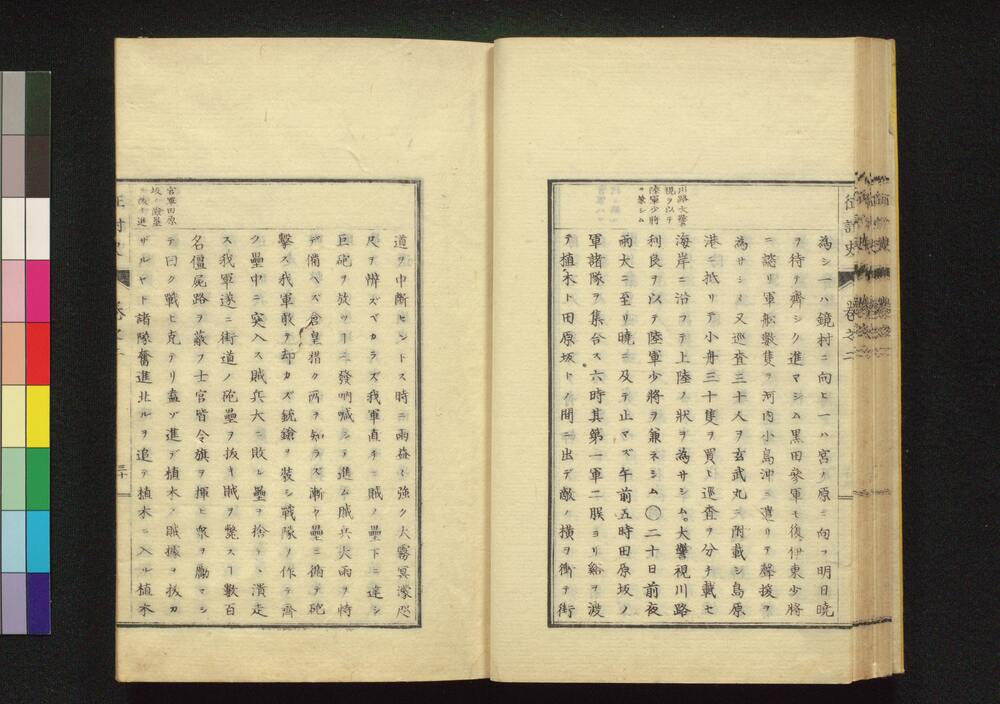 為シ一ハ鏡村ニ向ヒ一ハ宮ノ原ニ向フ明日暁
ヲ待テ齊シク進マシム黒田參軍モ復伊東少將
ニ諮リ軍舩數隻ヲ河内小島沖ニ遣リテ聲援ヲ
為サシメ又巡査三十人ヲ玄武丸ニ附載シ島原
港ニ抵リテ小舟三十隻ヲ買ヒ巡査ヲ分チ載セ
海岸ニ沿フテ上陸ノ狀ヲ為サシム。大警視川路
利良ヲ以テ陸軍少將ヲ兼ネシム〇二十日前夜
雨大ニ至リ曉ニ及テ止マズ午前五時田原坂ノ
軍諸隊ヲ集合ス六時其第一軍二股ヨリ谿ヲ渡
テ植木ト田原坂トノ間ニ出デ敵ノ横ヲ衝テ街
川路大警
視ヲ以テ
陸軍少將
ヲ兼シム
征討史
卷之二
道ヲ中斷セントス時ニ雨益々強ク大霧冥濛咫
尺ヲ辨ズベカラズ我軍直チニ賊ノ壘下ニ達シ
巨砲ヲ放ツヿ三發吶喊シテ進ム賊兵大雨ヲ恃
デ備ヘズ倉皇措ク所ヲ知ラズ漸ク壘ニ循テ砲
擊ス我軍敢テ却カズ銃鎗ヲ装シ戰隊ノ作テ齊
ク壘中ニ突入ス賊兵大ニ敗レ壘ヲ捨テヽ潰走
ス我軍遂ニ街道ノ砲壘ヲ抜キ賊ヲ斃スヿ數百
名僵屍路ヲ蔽フ士官皆令旗ヲ揮ヒ衆ヲ勵マシ
テ曰ク戰ヒ克テリ盍ゾ進デ植木ノ賊據ヲ抜カ
ザルヤト諸隊奮進北ルヲ追テ植木ニ入ル植木
官軍田原
坂ノ砲壘
三十